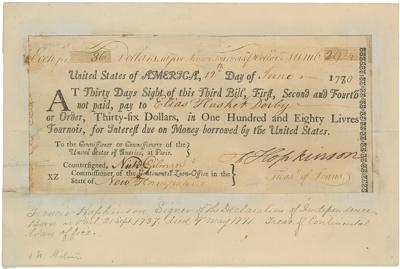 Exch for 36 Dollars, at five Livres Tournois per Dollar Numb.
United States of AMERICA, 12th Day of June 1779
AT Thirty Days Sight of this Third Bill, First, Second and Fourth
not paid, pay to Elias Hasket Derby
or Order, Thirty-six Dollars, in One Hundred and Eighty Livres
Tournois, for Interest due on Money borrowed by the United States.
To the Commissioner or Commissioners of the
United States of America, at Paris.
F Hopkinson
Countersigned, Nich Gilman
Treasr of Loans
XZ
Commissioner of the Continental Loan-Office in the
State of New Hampshire
Francis Hopkinson Signer of the Declaration of Independence
Born at Phil. 21 Sept. 1737. Died 9 May 1791. Treas of Continental
Loan office.